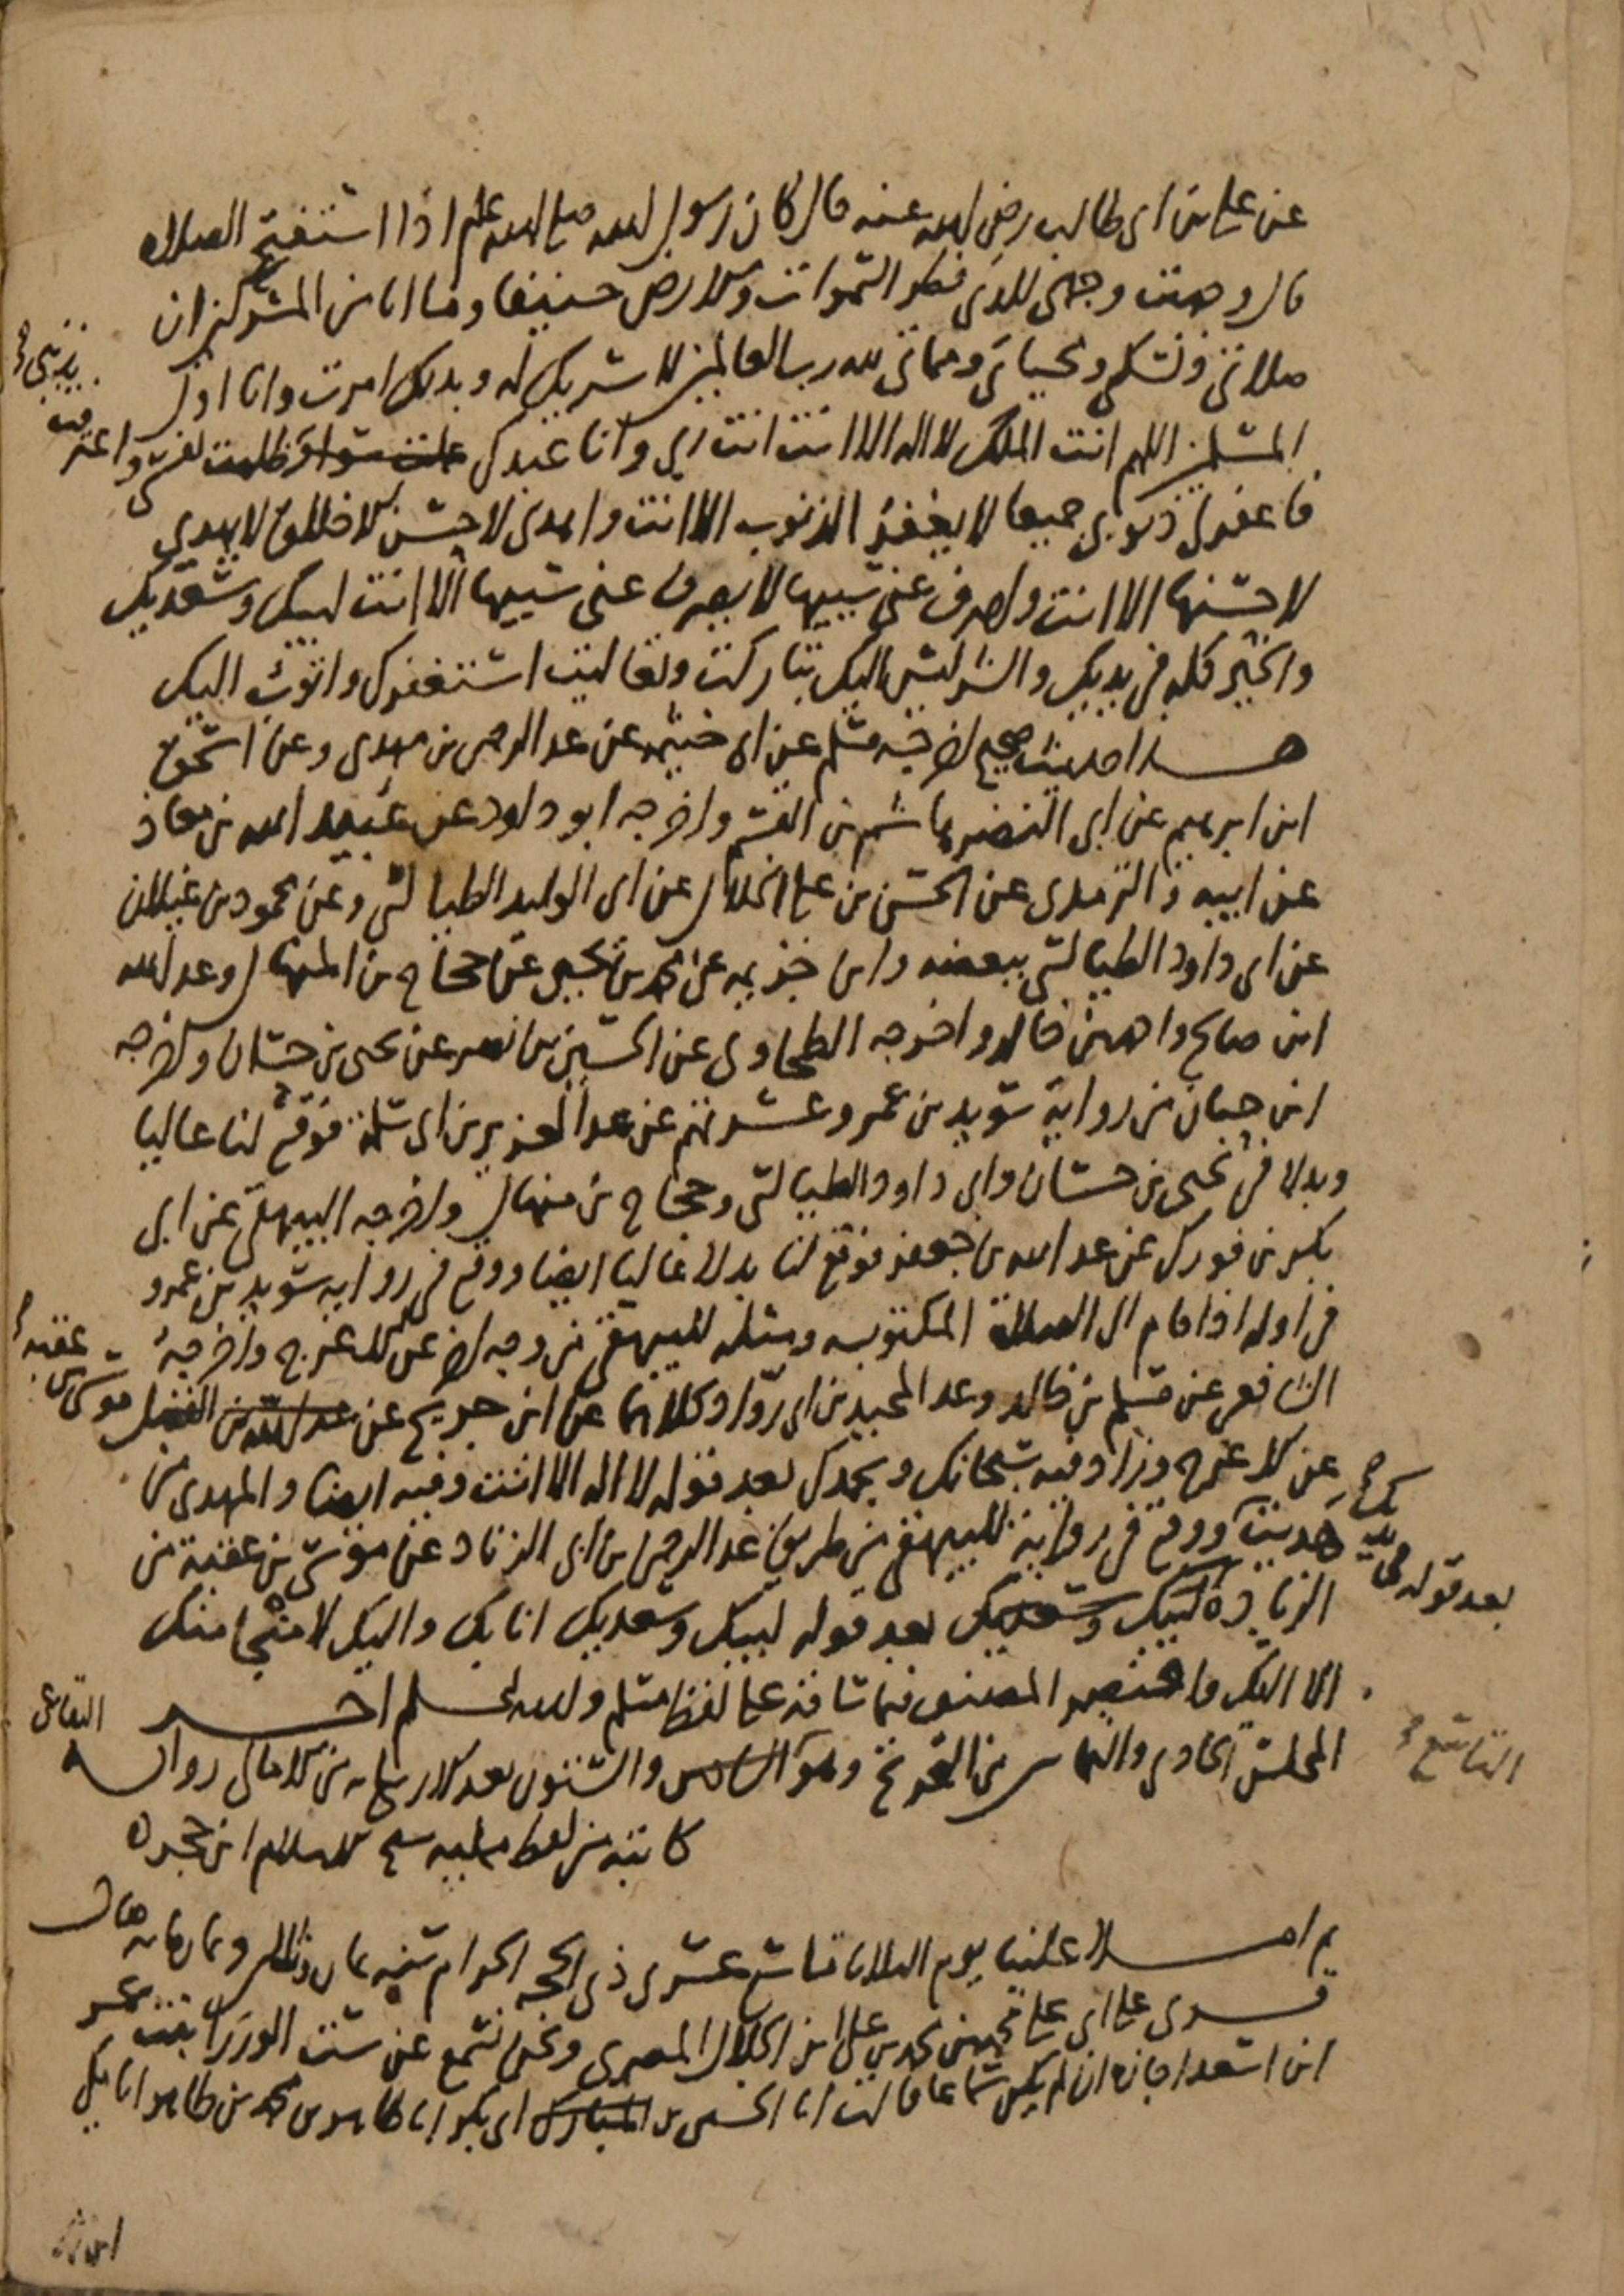 عن علي بن ابي طالب رضي الله عنه قال كان رسول الله صلى الله عليه وسلم اذا استفتح الصلاة
قال وجهت وجهي للذي فطر السموات والارض حنيفا وما انا من المشركين ان
صلاتي ونسكي ومحياي ومماتي لله رب العالمين لا شريك له وبذلك امرت وانا اول
المسلمين اللهم انت الملك لا اله الا انت انت ربي وانا عبدك ظلمت نفسي واعترفت
بذنبي
فاغفر لي ذنوبي جميعا لا يغفر الذنوب الا انت واهدني لاحسن الاخلاق لا يهدي
لاحسنها الا انت واصرف عني سيئها لا يصرف عني سيئها الا انت لبيك وسعديك
والخير كله في يديك والشر ليس اليك تباركت وتعاليت استغفرك واتوب اليك
هذا حديث صحيح اخرجه مسلم عن ابي خيثمة عن عبد الرحمن بن مهدي وعن اسحق
ابن ابرهيم عن ابي النضر هاشم بن القسم واخرجه ابو داود عن عبيد الله بن معاذ
عن ابيه والترمذي عن الحسن بن علي الخلال عن ابي الوليد الطيالسي وعن محمود بن غيلان
عن ابي داود الطيالسي ببعضه وابن خزيمه عن محمد بن يحيى عن حجاج بن المنهال وعبد الله
ابن صالح واحمد بن خالد واخرجه الطحاوي عن الحسين بن نصر عن يحيى بن حسان واخرجه
ابن حبان من رواية سويد بن عمرو عشرتهم عن عبد العزيز بن ابي سلمة فوقع لنا عاليا
وبدلا في يحيى بن حسان وابي داود الطيالسي وحجاج بن منهال واخرجه البيهقي عن ابي
بكر بن فورك عن عبد الله بن جعفر فوقع لنا بدلا عاليا ايضا ووقع في روايه سويد بن عمرو
في اوله اذا قام الى الصلاة المكتوبه ومثله للبيهقي من وجه اخر عن الاعرج واخرجه
الشافعي عن مسلم بن خالد وعبد المجيد بن ابي رواد وكلاهما عن ابن جريج عن عبد الله بن الفضل موسى بن عقبه
عن الاعرج وزاد فيه سبحانك وبحمدك بعد قوله لا اله الا انت وفيه ايضا والمهدي من
هديت ووقع في رواية للبيهقي من طريق عبد الرحمن بن ابي الزناد عن موسى بن عقبة من
بعد قوله في يديك
الزياده لبيك وسعديك بعد قوله لبيك وسعديك انا بك واليك لا منجا منك
الا اليك واختصر المصنف فيما ساقه على لفظ مسلم والله اعلم اخر
المجلس الحادي من التخريج وهو السادس والستون بعد الاربعمايه من الامالي رواية البقاعي
التاسع
كاتبه من لفظ شيخ الاسلام ابن حجر ه
ثم املا علينا يوم الثلاثا تاسع عشري ذي الحجه الحرام سنه ثمان وثلاثين وثمانمايه قال
قرئ على ابي علي محمد بن محمد بن علي ابن الجلال المصري ونحن نسمع عن ست الوزرا بنت عمر
ابن اسعد اجازه ان لم يكن سماعا قالت انا الحسين بن المبارك ابي بكر انا طاهر بن محمد بن طاهر انا مكي